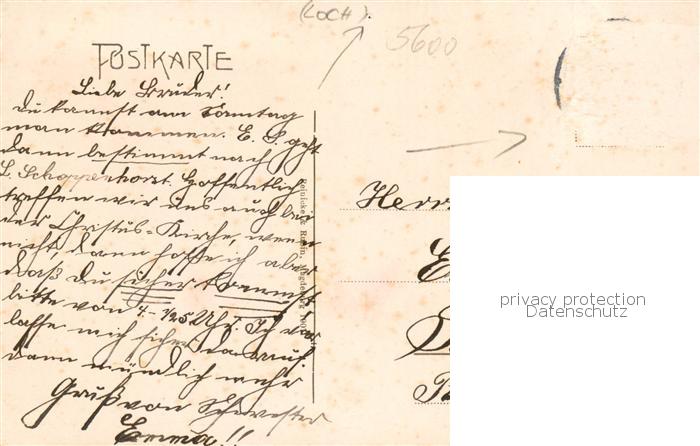 (LOCH).
5600
POSTKARTE
Liebe Bruder!
Du kannst am Sonntag
man kommen. E. S. geht
dann bestimmt nach
L. Schoppenhorst. Hoffentlich
treffen wir uns auch bei
der Christus-Kirche, wenn
nicht, dann hoffe ich aber
daß Du sicher kommst
bitte von 4-1/2 5 Uhr. Ich
lasse mich sicher darauf.
dann mündlich mehr
Gruß von Schwester
Emma!!
Reinicke & Rubin, Magdeburg
Herrn
privacy protection
Datenschutz